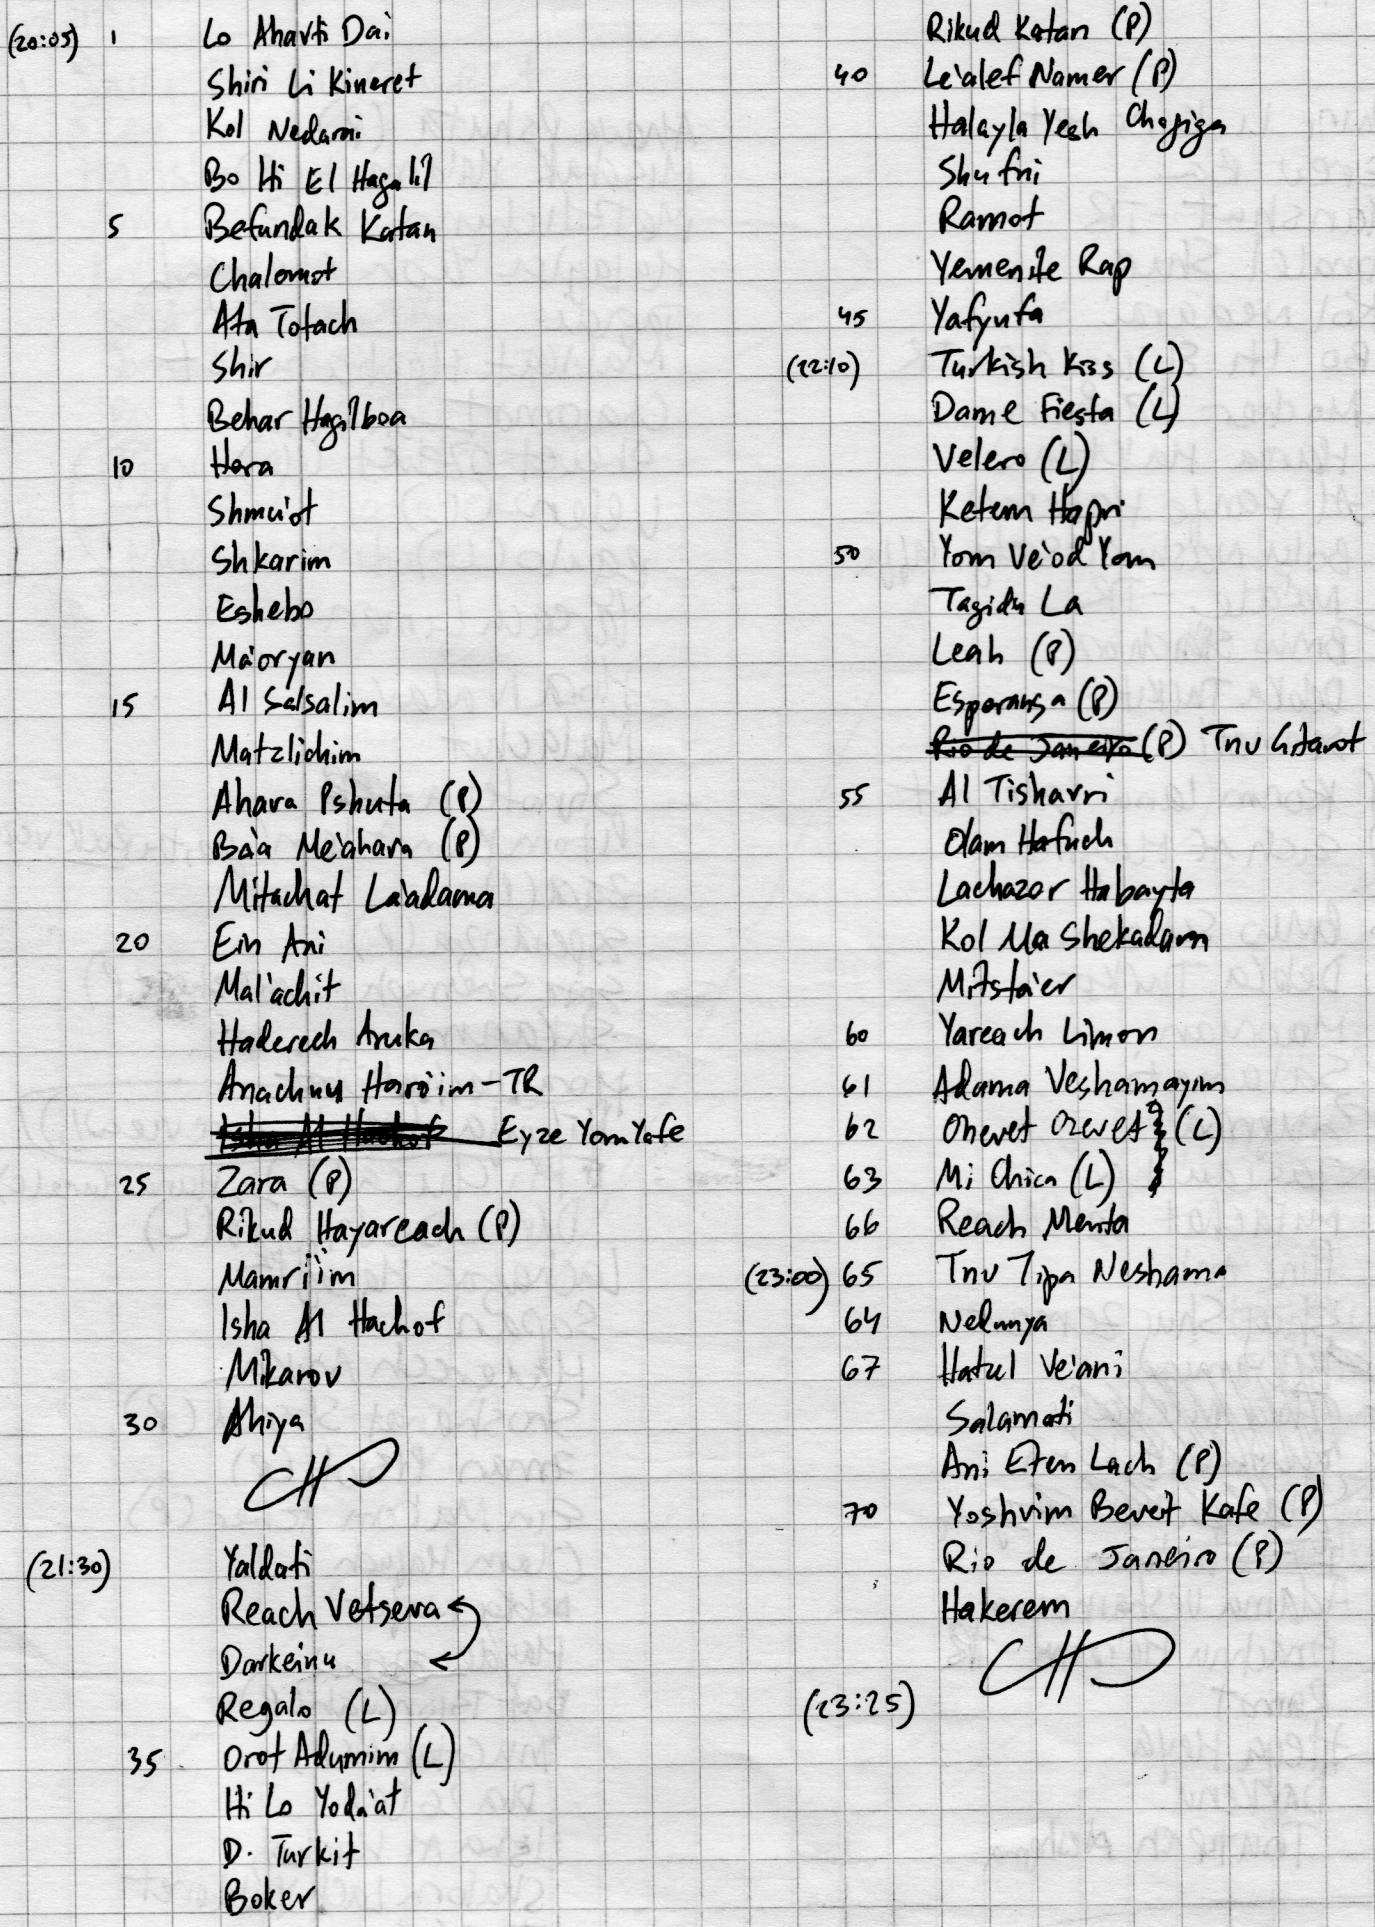 (20:05) 1 Lo Ahavti Dai
Shiri Li Kineret
Kol Nedarai
Bo Hi El Hagalil
5 Befundak Katan
Chalomot
Ata Totach
Shir
Behar Hagilboa
10 Hora
Shmu'ot
Shkarim
Eshebo
Ma'oryan
15 Al Salsalim
Matzlichim
Ahava Pshuta (P)
Ba'a Me'ahava (P)
Mitachat La'adama
20 Ein Ani
Mal'achit
Haderech Aruka
Anachnu Haro'im - TR
Isha Al Hachof Eyze Yom Yafe
25 Zara (P)
Rikud Hayareach (P)
Mamri'im
Isha Al Hachof
Mikarov
30 Ahiya
(21:30) Yaldati
Reach Vetseva
Darkeinu
Regalo (L)
35 Orot Adumim (L)
Hi Lo Yoda'at
D. Turkit
Boker
Rikud Katan (P)
40 Le'alef Namer (P)
Halayla Yesh Chagiga
Shufni
Ramot
Yemenite Rap
45 Yafyufa
(22:10) Turkish Kiss (L)
Dame Fiesta (L)
Velero (L)
Ketem Hapri
50 Yom Ve'od Yom
Tagidu La
Leah (P)
Esperansa (P)
Rio de Janeiro (P) Tnu Gitarot
55 Al Tishavri
Olam Hafuch
Lachazor Habayta
Kol Ma Shekadam
Mitsta'er
60 Yareach Limon
61 Adama Veshamayim
62 Ohevet Ozevet (L)
63 Mi Chica (L)
66 Reach Menta
(23:00) 65 Tnu Tipa Neshama
64 Nelunya
67 Hatul Ve'ani
Salamati
Ani Eten Lach (P)
70 Yoshvim Beveit Kafe (P)
Rio de Janeiro (P)
Hakerem
(23:25)